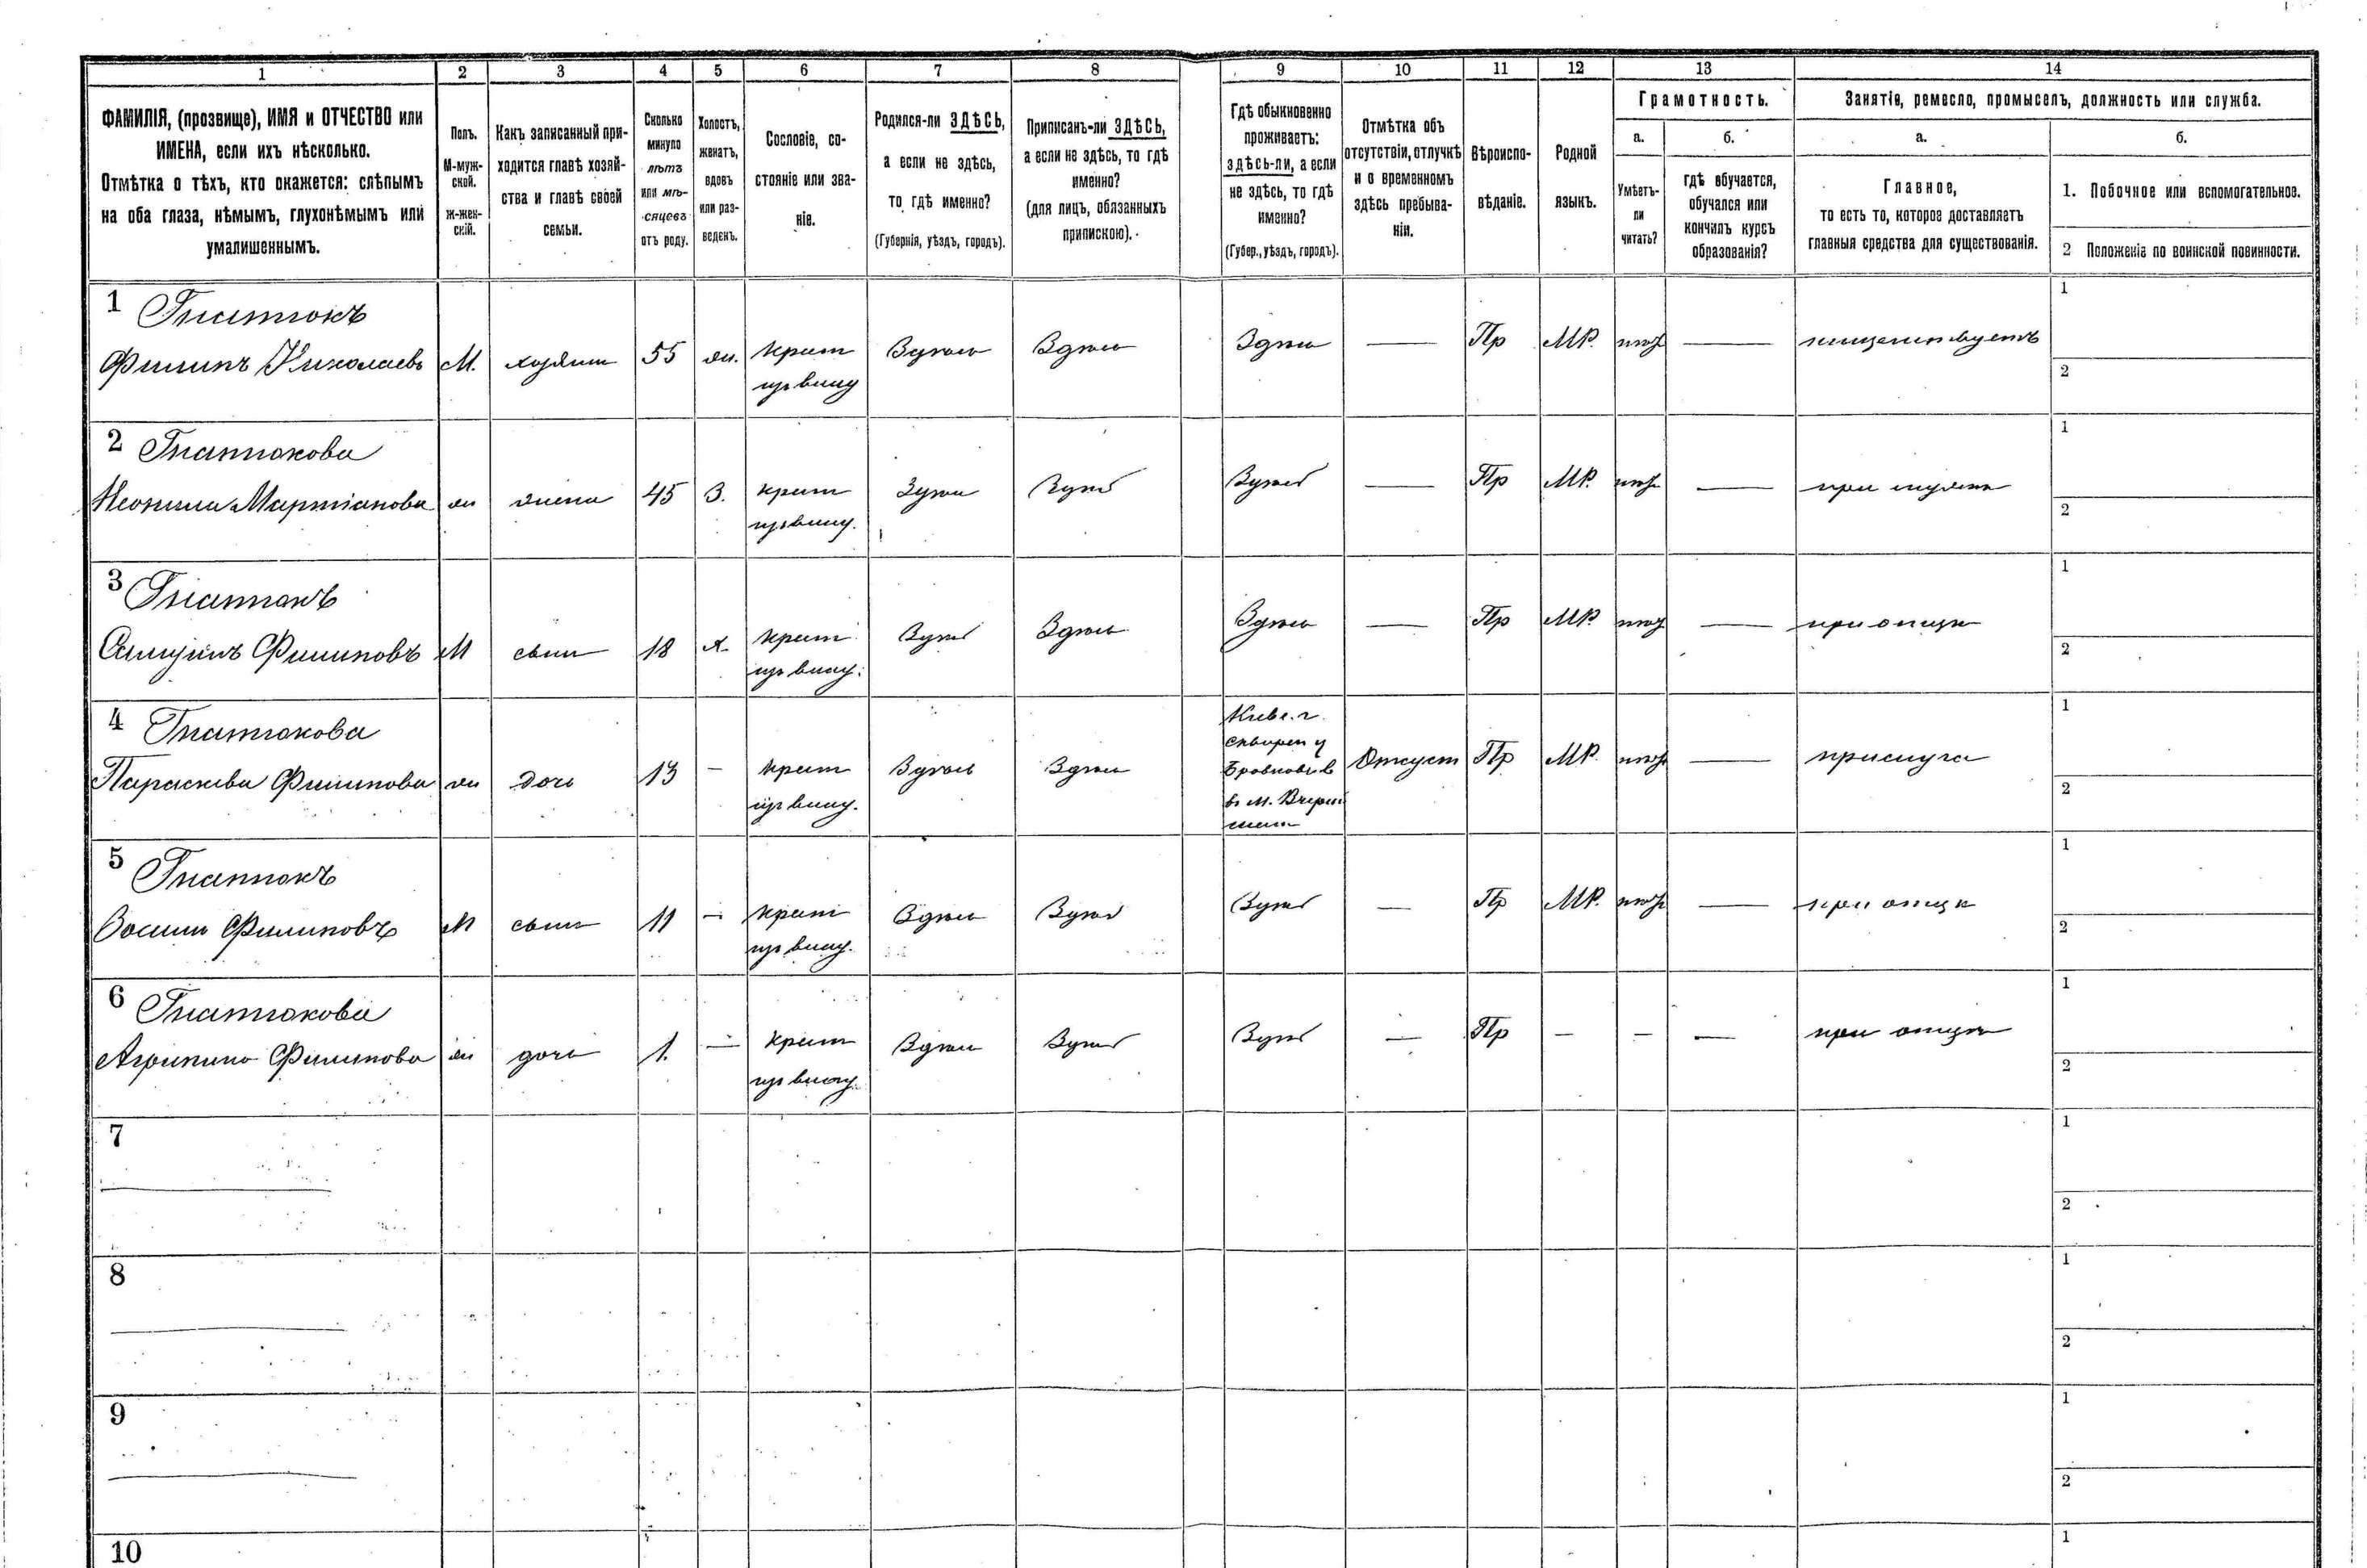 1 2 3 4 5 6 7 8 9 10 11 12 13 14
ФАМИЛІЯ, (прозвище), ИМЯ и ОТЧЕСТВО или
ИМЕНА, если ихъ нѣсколько.
Отмѣтка о тѣхъ, кто окажется: слѣпымъ
на оба глаза, нѣмымъ, глухонѣмымъ или
умалишеннымъ.
Полъ.
М-муж-
ской.
ж-жен-
скій.
Какъ записанный при-
ходится главѣ хозяй-
ства и главѣ своей
семьи.
Сколько
минуло
лѣтъ
или мѣ-
сяцевъ
отъ роду.
Холостъ,
женатъ,
вдовъ
или раз-
веденъ.
Сословіе, со-
стояніе или зва-
ніе.
Родился-ли ЗДѢСЬ,
а если не здѣсь,
то гдѣ именно?
(Губернія, уѣздъ, городъ).
Приписанъ-ли ЗДѢСЬ,
а если не здѣсь, то гдѣ
именно?
(для лицъ, обязанныхъ
припискою).
Гдѣ обыкновенно
проживаетъ:
здѣсь-ли, а если
не здѣсь, то гдѣ
именно?
(Губер., уѣздъ, городъ).
Отмѣтка объ
отсутствіи, отлучкѣ
и о временномъ
здѣсь пребыва-
ніи.
Вѣроиспо-
вѣданіе.
Родной
языкъ.
Грамотность.
а.
Умѣетъ-
ли
читать?
б.
гдѣ обучается,
обучался или
кончилъ курсъ
образованія?
Занятіе, ремесло, промыселъ, должность или служба.
а.
Главное,
то есть то, которое доставляетъ
главныя средства для существованія.
б.
1. Побочное или вспомогательное.
2 Положеніе по воинской повинности.
1 Гнатюкъ
Филипъ Николаевъ М. хозяин 55 жн. крест Здѣсь Здѣсь Здѣсь — Пр МР. нѣт — нищенствуетъ
1
2
2 Гнатюкова
Неонила Мартіанова жн жена 45 З. крест Здѣсь Здѣсь Здѣсь — Пр МР. нѣт — при мужѣ
1
2
3 Гнатюкъ
Самуилъ Филиповъ М сын 18 х. крест Здѣсь Здѣсь Здѣсь — Пр МР. нѣт — при отцѣ
1
2
4 Гнатюкова
Параскева Филипова жн дочь 13 — крест Здѣсь Здѣсь Киев. г. Отсуст Пр МР. нѣт — прислуга
1
2
5 Гнатюкъ
Филиповъ М сын 11 — крест Здѣсь Здѣсь Здѣсь — Пр МР. нѣт — при отцѣ
1
2
6 Гнатюкова
Агрипина Филипова жн дочь 1. — крест Здѣсь Здѣсь Здѣсь — Пр — — — при отцѣ
1
2
7
1
2
8
1
2
9
1
2
10
1